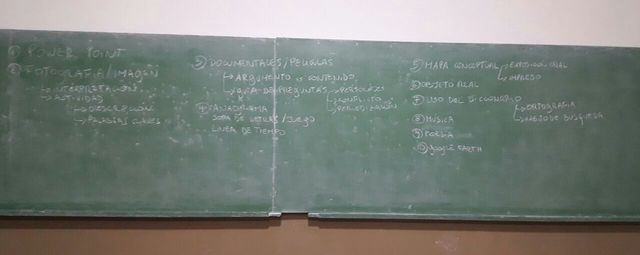 ① POWER POINT
② FOTOGRAFIA/IMAGEN
→ INTERPRETACIÓN
→ ACTIVIDAD
→ DESCRIPCIÓN
→ PALABRAS CLAVES
③ DOCUMENTALES/PELICULAS
→ ARGUMENTO o CONTENIDO
→ GUIA DE PREGUNTAS → PERSONAJES
→ CONFLICTO
④
SOPA DE LETRAS/JUEGO
LINEA DE TIEMPO
⑤ MAPA CONCEPTUAL → EXPOSICION ORAL
→ IMPRESO
⑥ OBJETO REAL
⑦ USO DEL DICCIONARIO → ORTOGRAFIA
→ MODO DE BUSQUEDA
⑧ MUSICA
⑨ POESIA
⑩ GOOGLE EARTH